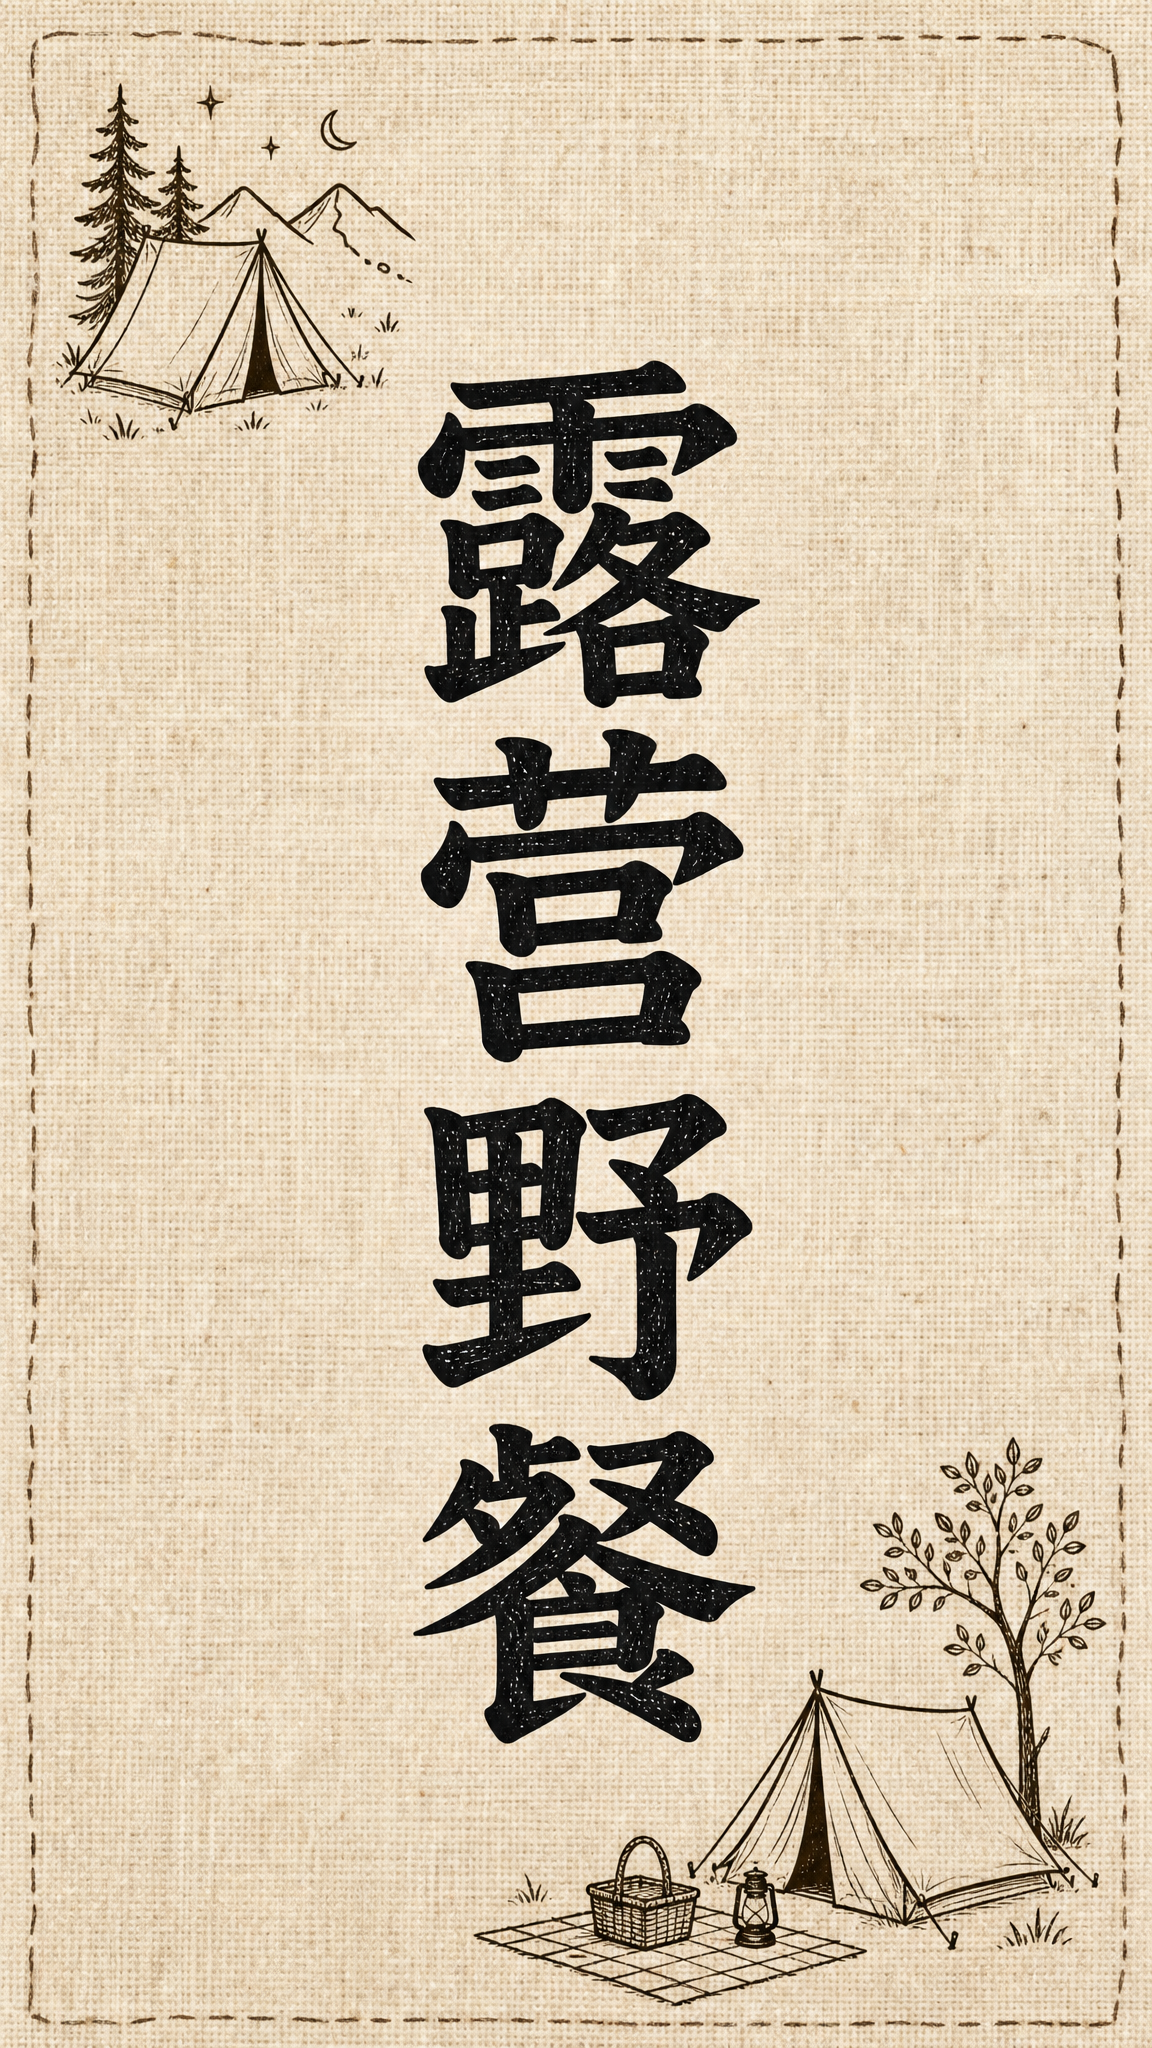 露营野餐